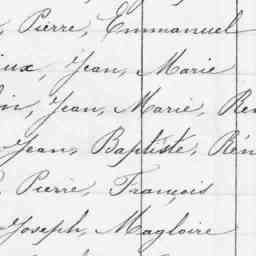 , Pierre, Emmanuel
ieux, Jean, Marie
lin, Jean, Marie, Ren
Jean, Baptiste, Rén
, Pierre, François
Joseph, Magloire